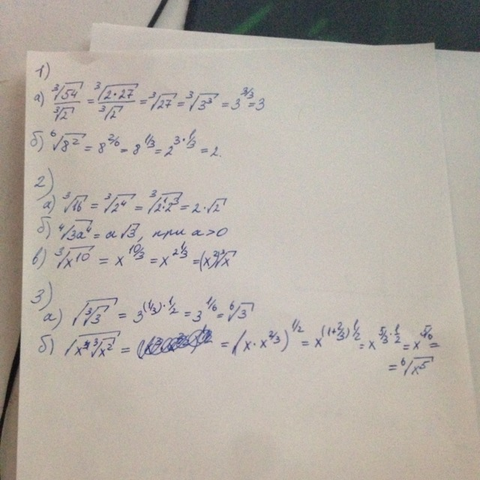 1)
а) ∛54 / ∛2 = ∛(2·27) / ∛2 = ∛27 = ∛(3³) = 3^(3/3) = 3
б) ⁶√(8²) = 8^(2/6) = 8^(1/3) = 2^(3·1/3) = 2.
2)
а) ∛16 = ∛(2⁴) = ∛(2¹·2³) = 2·√2
б) ⁴√(3a⁴) = a√3, при a>0
в) ∛(x¹⁰) = x^(10/3) = x^(2 1/3) = (x²)∛x
3)
а) √(∛3) = 3^((1/3)·1/2) = 3^(1/6) = ⁶√3
б) √(x ∛(x²)) = = (x·x^(2/3))^(1/2) = x^((1+2/3)1/2) = x^(5/3·1/2) = x^(5/6) =
= ⁶√(x⁵)